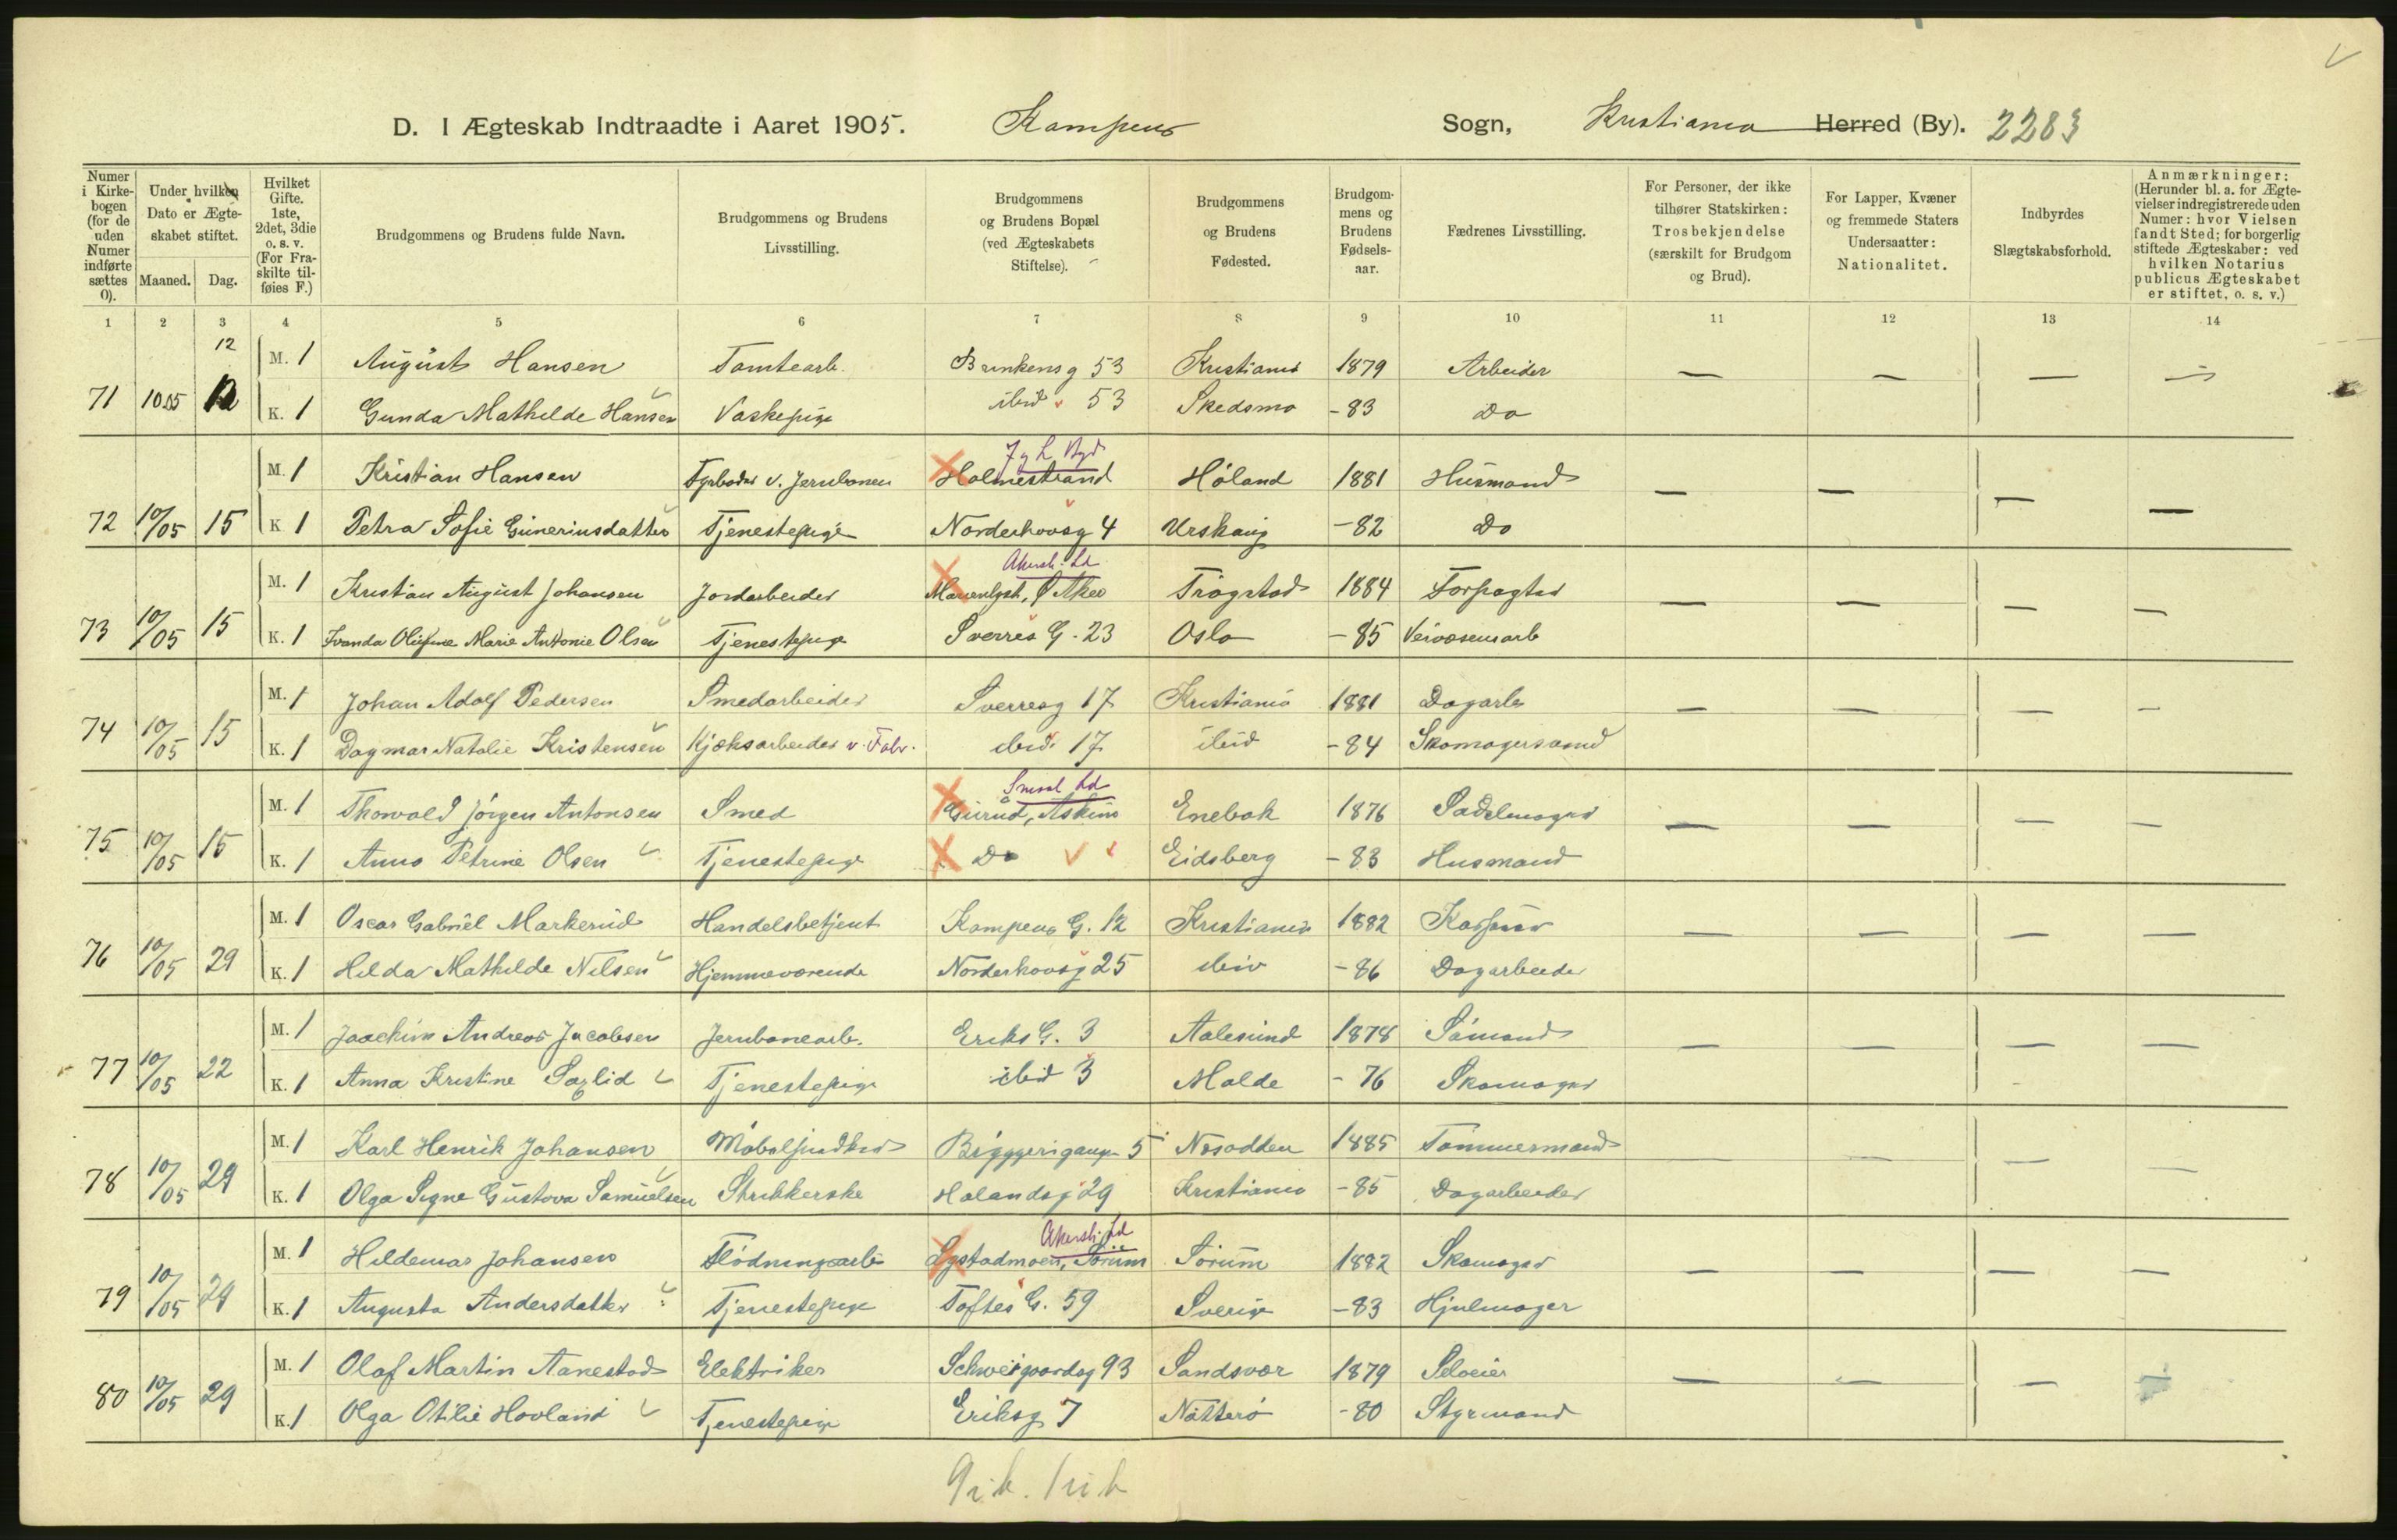 D. I Ægteskab Indtraadte i Aaret 1905. Kampens Sogn, Kristiania Herred (By). 2283
Numer i Kirkebogen (for de uden Numer indførte sættes 0).
Under hvilken Dato er Ægteskabet stiftet.
Maaned. Dag.
Hvilket Gifte. 1ste, 2det, 3die o. s. v. (For Fraskilte tilføies F.)
Brudgommens og Brudens fulde Navn.
Brudgommens og Brudens Livsstilling.
Brudgommens og Brudens Bopæl (ved Ægteskabets Stiftelse).
Brudgommens og Brudens Fødested.
Brudgommens og Brudens Fødselsaar.
Fædrenes Livsstilling.
For Personer, der ikke tilhører Statskirken: Trosbekjendelse (særskilt for Brudgom og Brud).
For Lapper, Kvæner og fremmede Staters Undersaatter: Nationalitet.
Indbyrdes Slægtskabsforhold.
Anmærkninger: (Herunder bl. a. for Ægtevielser indregistrerede uden Numer: hvor Vielsen fandt Sted; for borgerlig stiftede Ægteskaber: ved hvilken Notarius publicus Ægteskabet er stiftet, o. s. v.)
1 2 3 4 5 6 7 8 9 10 11 12 13 14
12
M. 1 August Hansen Tomtearb. Brinkensg 53 Kristiania 1879 Arbeider — — — —
71 10/05 12 K. 1 Gunda Mathilde Hansen Vaskepige ibid 53 Skedsmo -83 Do
M. 1 Kristian Hansen Fyrbøder v. Jernbanen Holmestrand Høland 1881 Husmand — — — —
72 10/05 15 K 1 Petra Sofie Gunerinsdatter Tjenestepige Norderhovsg 4 Urskoug -82 Do
Akersh. Ld
M. 1 Kristian August Johansen Jordarbeider Ø Aker Trøgstad 1884 Forpagter — — — —
73 10/05 15 K. 1 Marie Antonie Olsen Tjenestepige Sverres G. 23 Oslo -85 Veivæsensarb
M. 1 Johan Adolf Pedersen Smedarbeider Sverresg 17 Kristiania 1881 Dagarb — — — —
74 10/05 15 K. 1 Dagmar Natalie Kristensen Kjæksarbeider v. Fabr. ibid. 17 ibid -84 Skomagersvend
Smaal Ld
M. 1 Thorvald Jørgen Antonsen Smed Gurud, Askim Enebak 1876 Sadelmager — — — —
75 10/05 15 K. 1 Anna Petrine Olsen Tjenestepige Do Eidsberg -83 Husmand
M. 1 Oscar Gabriel Markerud Handelsbetjent Kampens G. 12 Kristiania 1882 — — — —
76 10/05 29 K. 1 Hilda Mathilde Nilsen Hjemmeværende Norderhovsg 25 ibid -86 Dagarbeider
M. 1 Joachim Andreas Jacobsen Jernbanearb. Eriks G. 3 Aalesund 1878 Sømand — — — —
77 10/05 22 K. 1 Anna Kristine Tjenestepige ibid 3 Molde - 76 Skomager
M. 1 Karl Henrik Johansen Møbelsnedker Byggerigangen 5 Næsodden 1885 Tømmermand — — — —
78 10/05 29 K. 1 Olga Signe Gustava Samuelsen Strikkerske Hølandsg 29 Kristiania -85 Dagarbeider
Akersh. Ld
M. 1 Hildemar Johansen Flødningsarb Sørum Sørum 1882 Skomager — — — —
79 10/05 29 K. 1 Augusta Andersdatter Tjenestepige Toftes G. 59 Sverige -83 Hjulmager
M. 1 Olaf Martin Aanestad Elektriker Schweigaardsg 93 Sandsvær 1879 Selveier — — —
80 10/05 29 K. 1 Olga Otilie Hovland Tjenestepige Eriksg 7 Nøtterø -80 Styrmand